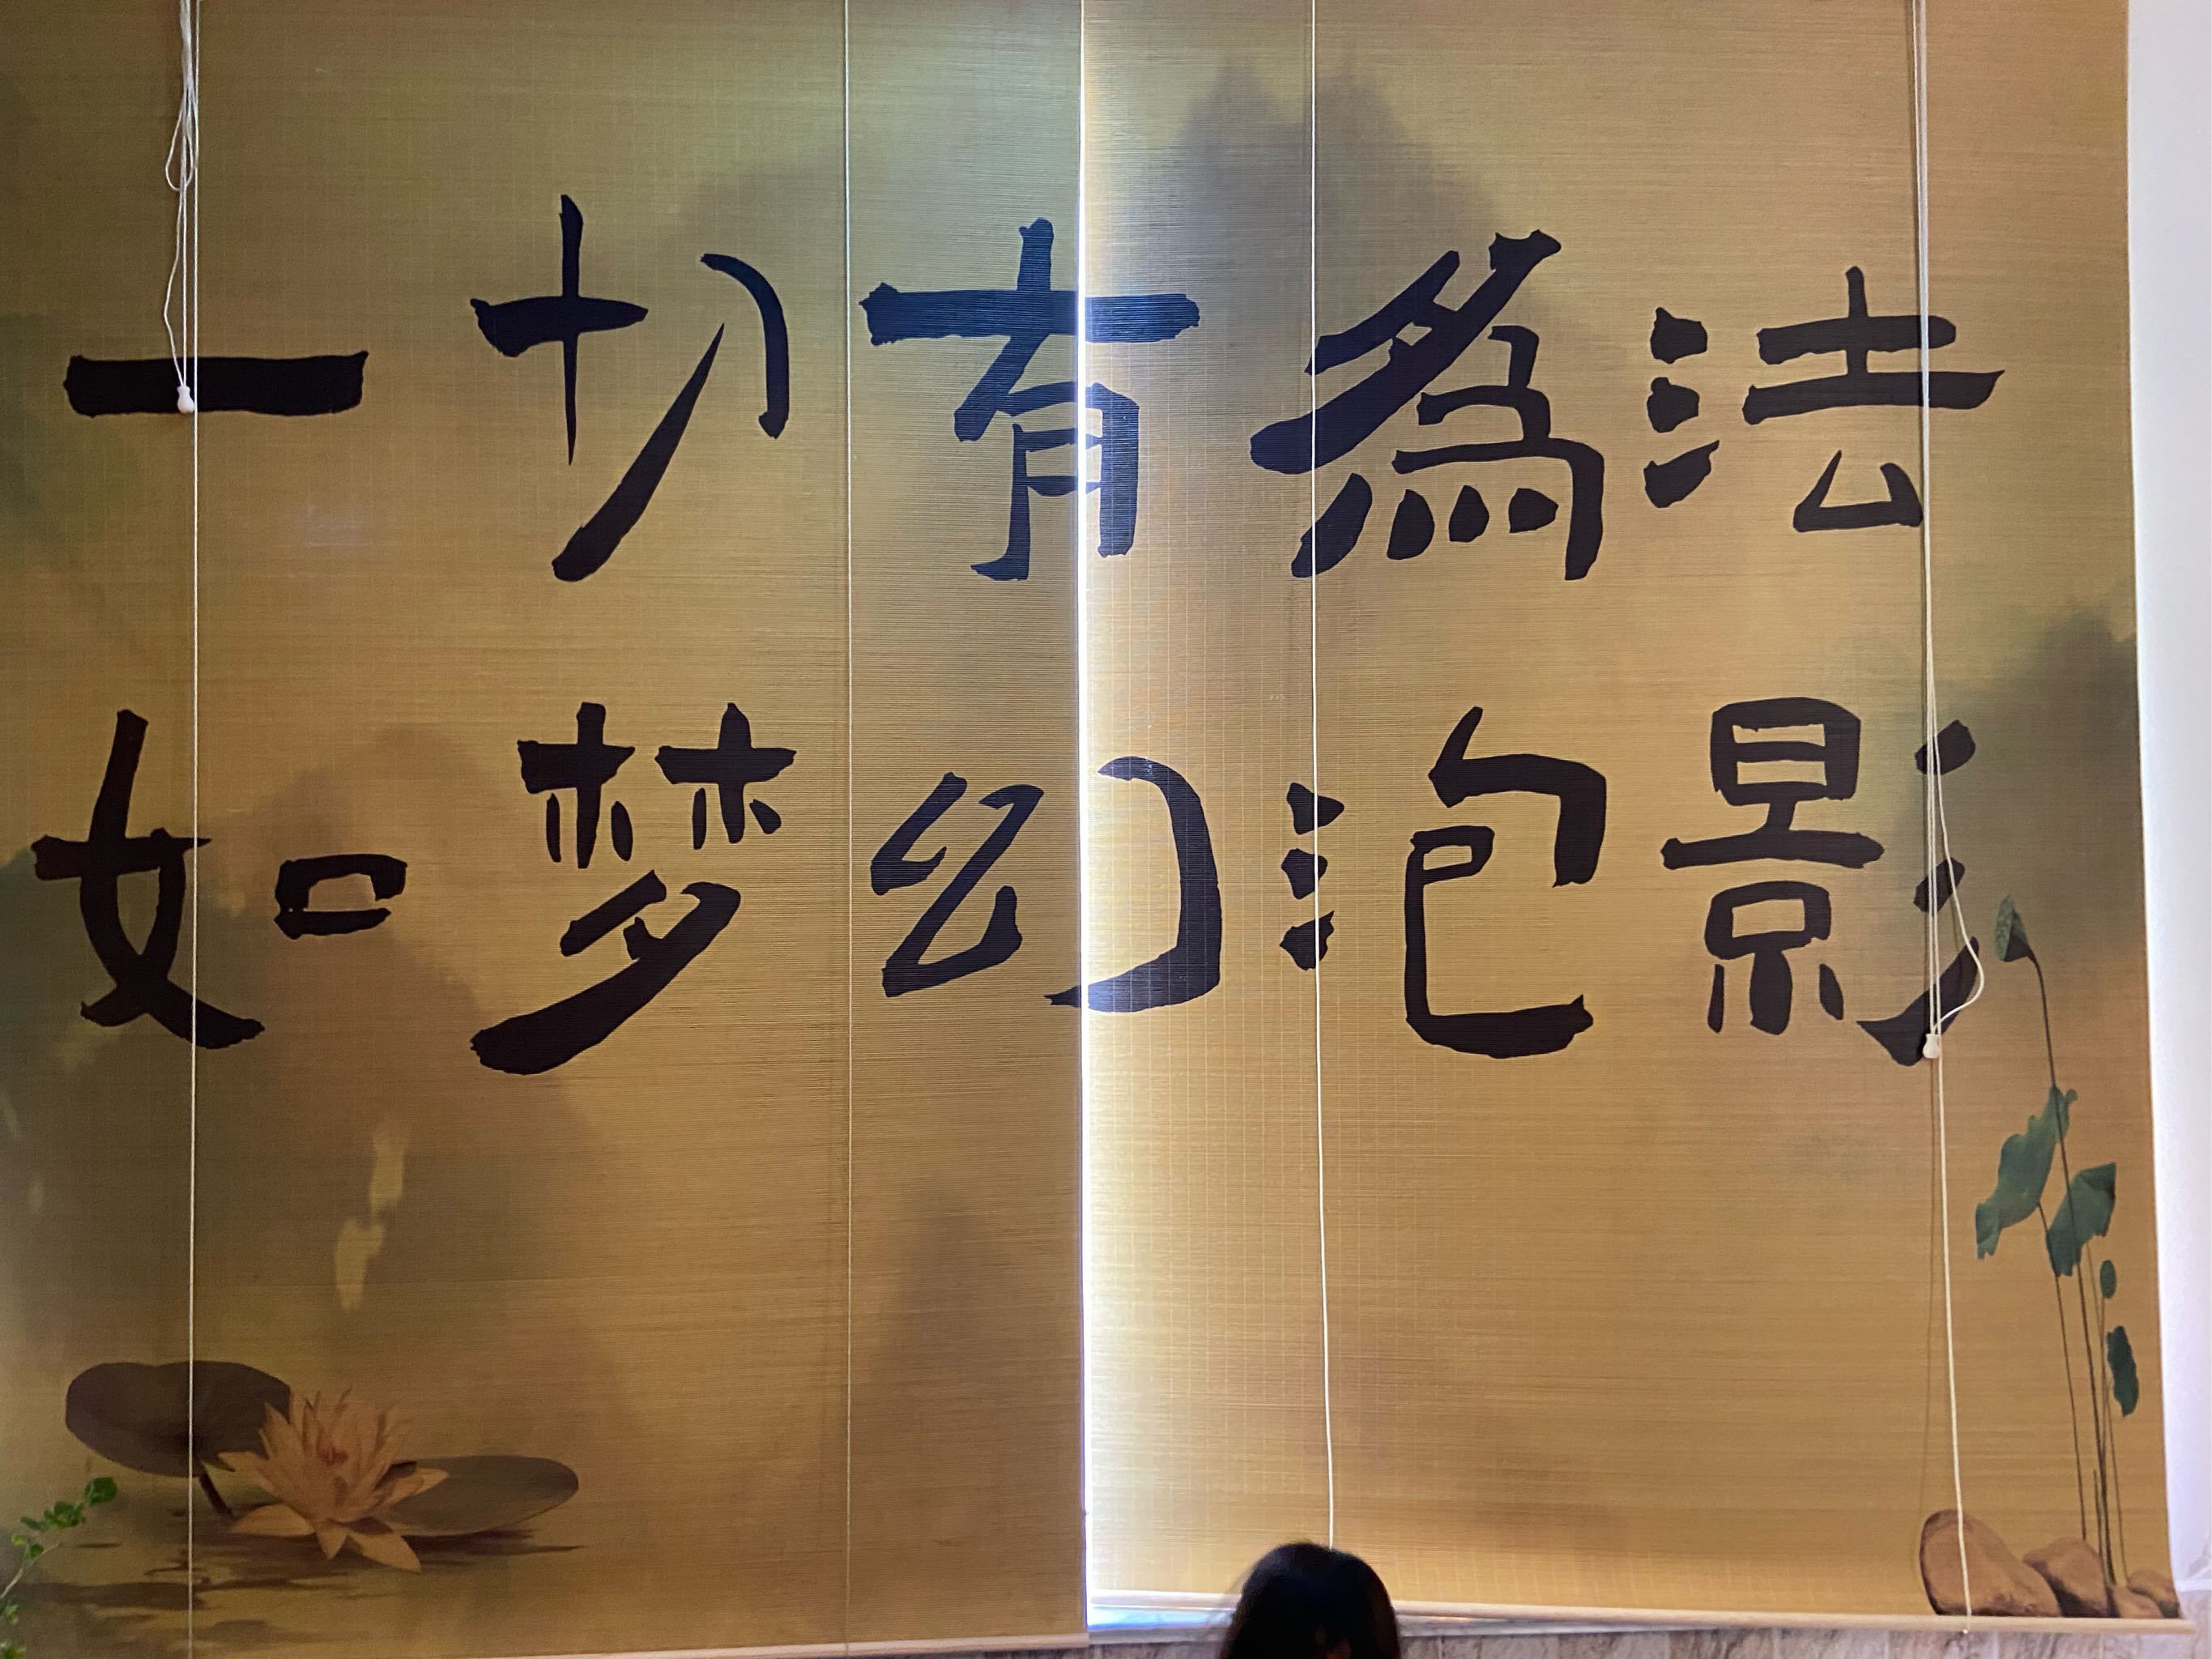 一切有為法
如梦幻泡影